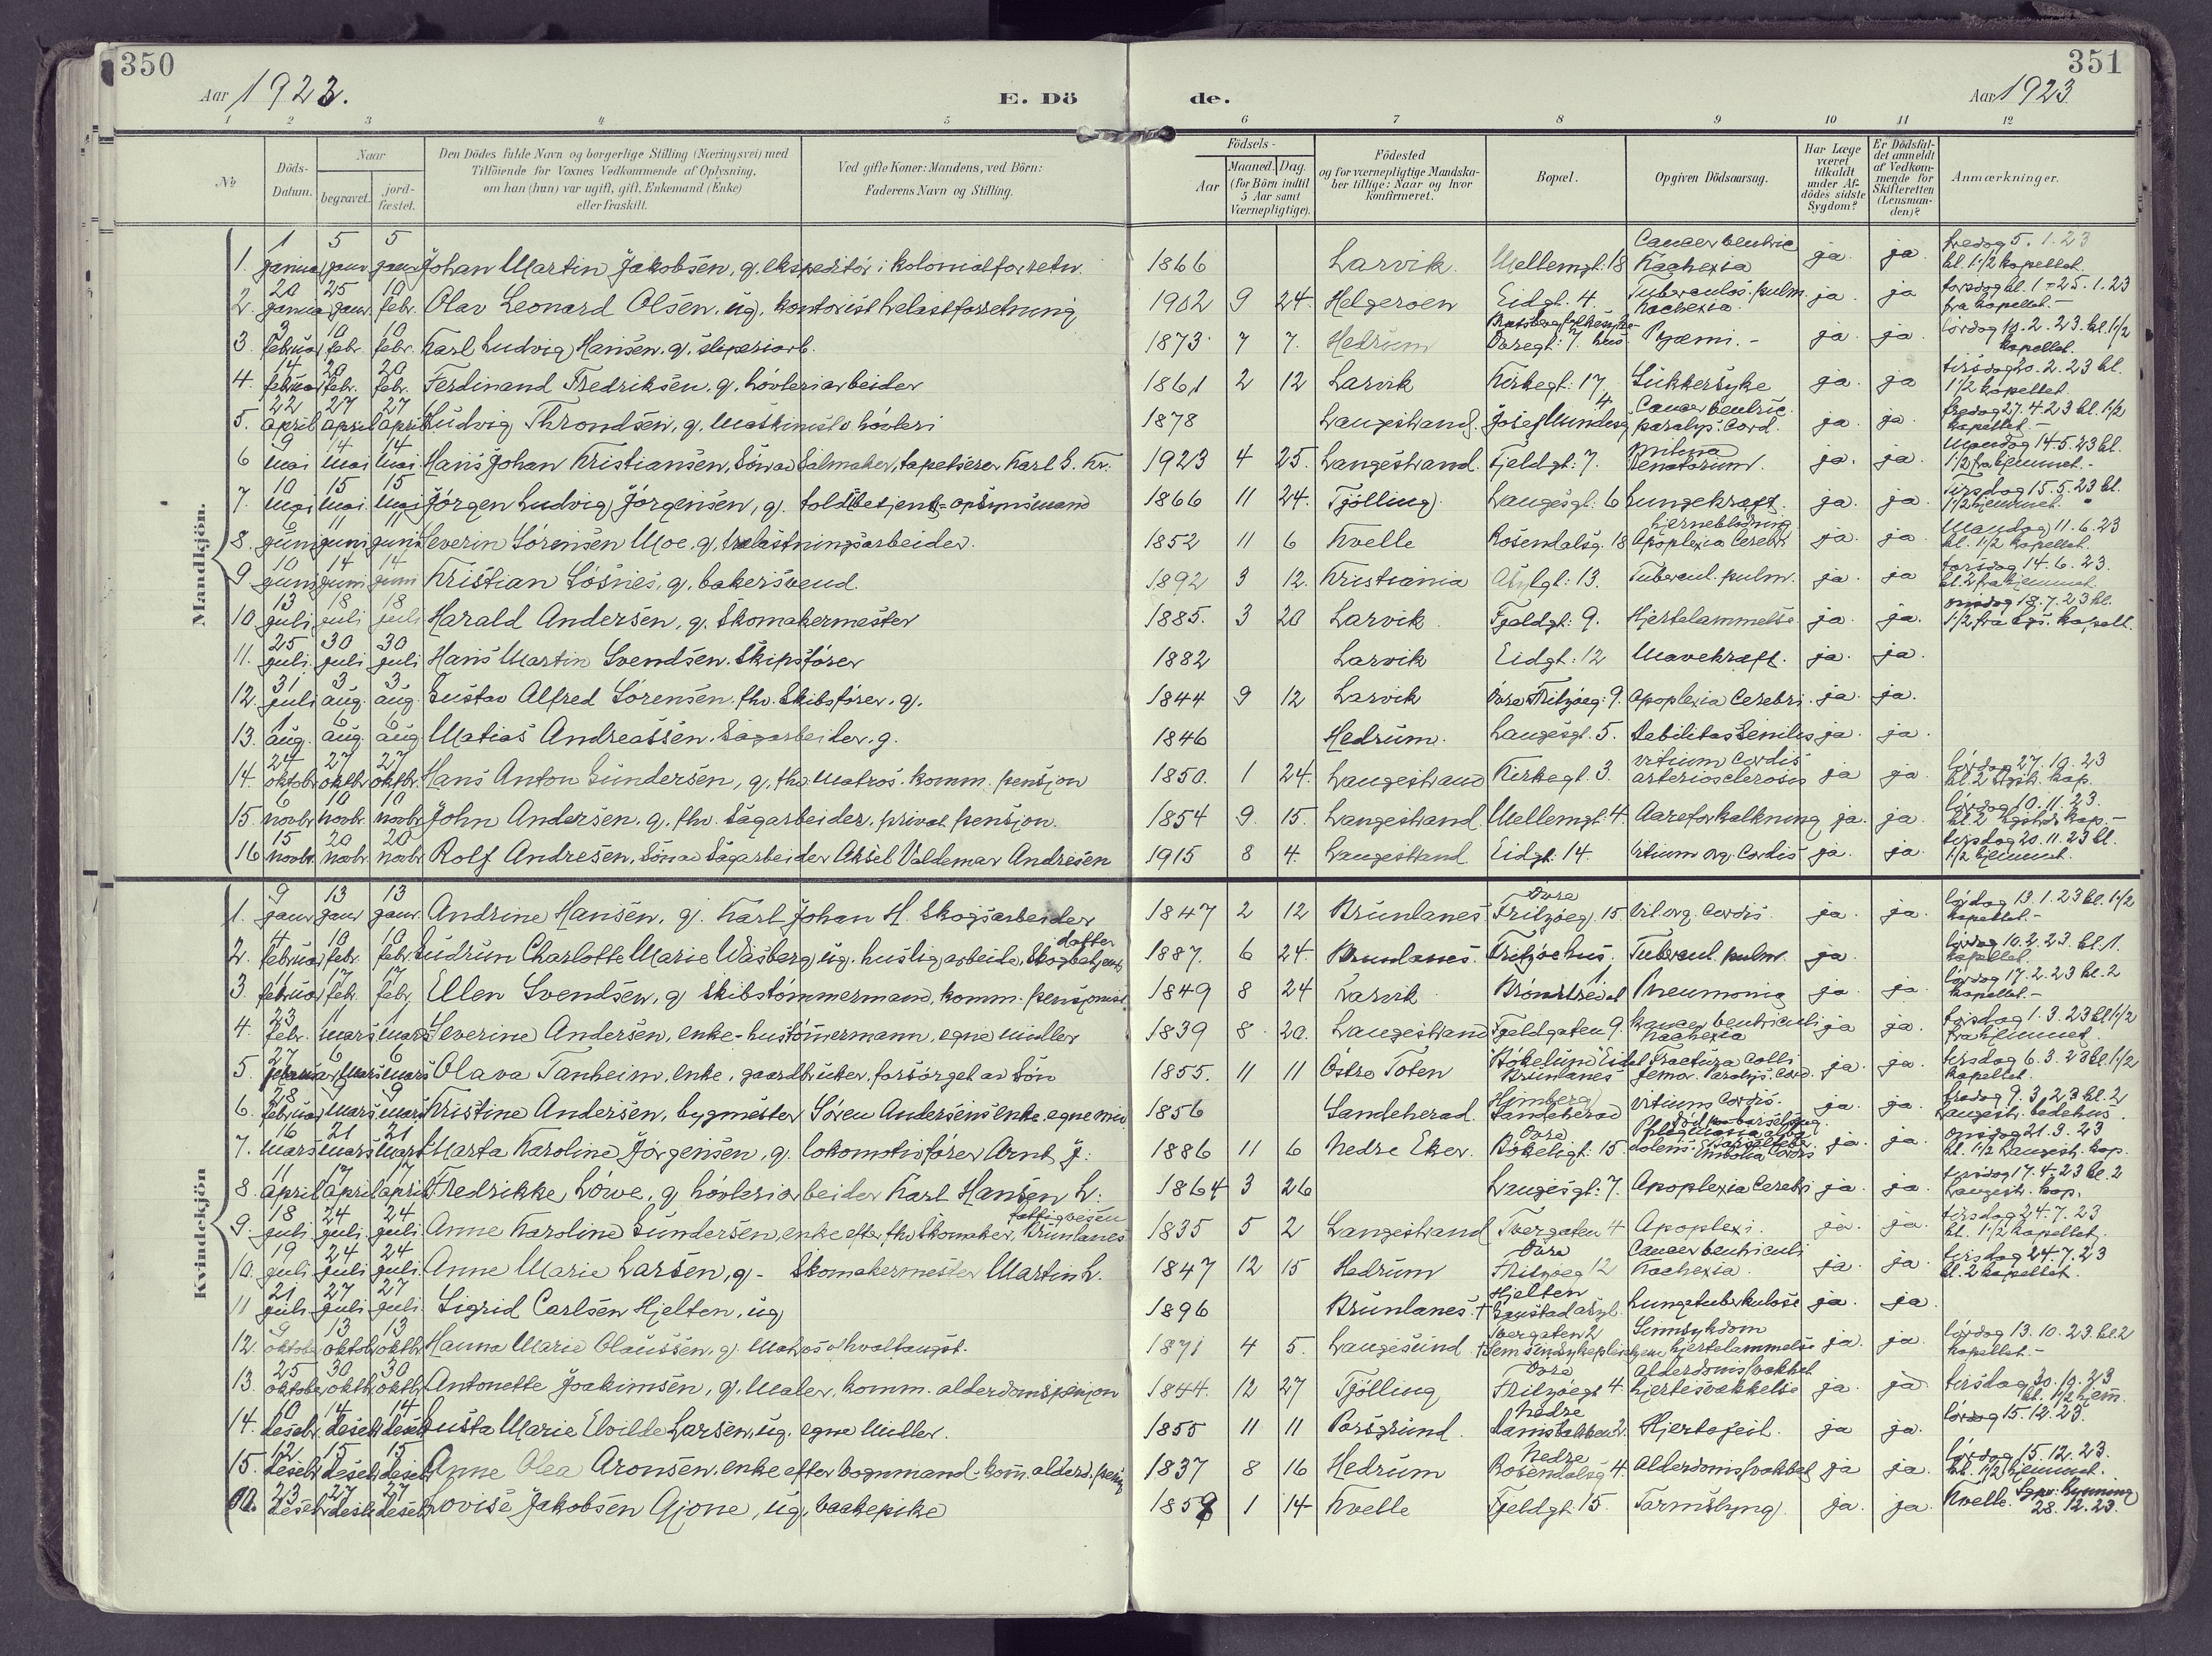 350
Aar 1923.
E. Dö
de.
Aar 1923
351
1 2 3 4 5 6 7 8 9 10 11 12
No
Döds-Datum.
Naar
begravet.
jord-fæstet.
Den Dödes fulde Navn og borgerlige Stilling (Næringsvei) med
Tilföiende for Voxnes Vedkommende af Oplysning,
om han (hun) var ugift, gift, Enkemand (Enke)
eller fraskilt.
Ved gifte Koner: Mandens, ved Börn:
Faderens Navn og Stilling.
Födsels-
Aar
Maaned. Dag.
(for Börn indtil
5 Aar samt
Værnepligtige).
Födested
og for værnepligtige Mandska-
ber tillige: Naar og hvor
konfirmeret.
Bopæl.
Opgiven Dödsaarsag.
Har Læge
været
tilkaldt
under Af-
dödes sidste
Sygdom?
Er Dödsfal-
det anmeldt
af Vedkom-
mende for
Skifteretten
(Lensman-
den)?
Anmærkninger.
Mandkjön.
1. 1 januar 5 janr 5 janr Johan Martin Jakobsen, g. ekspeditör i kolonialforretn. 1866 Larvik. Mellemgt. 18 Cancer ventric Kachexia ja. ja. fredag 5. 1. 23 kl. 1 1/2 kapellet.
2. 20 januar 25 janr 10 febr. Olav Leonard Olsen, ug. kontorist trelastforretning 1902 9 24. Helgeroen Eidgt. 4. Tuberculos. pulm. Kachexia. ja. ja torsdag kl. 1 - 25. 1. 23 fra kapellet.-
3. 3 februar 10 febr. 10 febr. Karl Ludvig Hansen. g. sliperiarb. 1873 7 7. Hedrum Övregt. 7. Pyæmi.- ja. ja. lördag 10. 2. 23. kl. 1 1/2 kapellet.
4. 14 februar 20 febr. 20 febr. Ferdinand Fredriksen. g. hövleriarbeider 1861 2 12 Larvik Kirkegt. 17 Sukkersyke ja. ja tirsdag 20. 2. 23 kl. 1 1/2 kapellet.
5. 22 april 27 april 27 april Ludvig Throndsen, g. maskinist v hövleri 1878 Langestrand. 4 Cancer ventric. paralys. cord. ja. ja. fredag 27. 4. 23 kl. 1 1/2 kapellet.-
6 9 mai 14 mai 14 mai. Hans Johan Kristiansen, Sön av Salmaker, tapetserer Karl S. Kr. 1923 4 25. Langestrand. Fjeldgt. 7. ja. ja. Mandag 14. 5. 23 kl. 1 1/2 fra hjemmet.-
7. 10 mai 15 mai. 15 mai Jörgen Ludvig Jörgensen, g. toldbetjent-opsynsmand 1866 11 24. Tjölling. Langesgt. 6 Lungekræft. ja. ja. Tirsdag 15. 5. 23 kl. 1 1/2 hjemmet.
8. 6 juni 11 juni 11 juni Severin Sörensen Moe. g. trelastningsarbeider. 1852 11 6 Kvelle Rosendalsg. 18 hjerneblödning Apoplexia cerebri ja. ja. Mandag 11. 6. 23 kl. 1 1/2 kapellet.
9 10 juni 14 juni 14 juni Kristian Sösnes, g. bakersvend. 1892 3 12. Kristiania Asylgt. 13. Tubercul. pulm. ja. ja torsdag 14. 6. 23. kl. 2 fra hjemmet.
10. 13 juli 18 juli 18 juli Harald Andersen, g. Skomakermester 1885. 3 20 Larvik Fjeldgt. 9. Hjertelammelse ja. ja. onsdag 18. 7. 23 kl. 1 1/2 fra Lgs. kapell.
11. 25 juli. 30 juli 30 juli Hans Martin Svendsen. Skipsförer 1882 Larvik Eidgt. 12 Mavekræft. ja. ja.
12. 31 juli 3 aug. 3 aug. Gustav Alfred Sörensen. fhv. Skibsförer. g. 1844 9 12 Larvik Övre Fritzöeg. 9. Apoplexia Cerebri. ja. ja.
13. 1 aug. 6 aug. 6 aug Matias Andreassen. Sagarbeider. g. 1846 Hedrum. Langesgt. 5. Debilitas Senilis ja. ja.
14. 24 oktobr 27 oktbr 27 oktbr. Hans Anton Gundersen, g. fhv. Matros. komm. pensjon 1850. 1 24. Langestrand Kirkegt. 3. vitium Cordis arteriosclerosis ja ja. lördag 27. 10. 23 kl. 2 Lgstr. kap.
15. 6 novbr 10 novbr. 10 novbr John Andersen. g. fhv. Sagarbeider. privat pensjon. 1854 9. 15. Langestrand. Mellemgt. 4. Aareforkalkning ja. ja. lördag 10. 11. 23. kl. 2 Lgstrds kap.-
16 15 novbr. 20 novbr 20 novbr Rolf Andresen, Sön av Sagarbeider Aksel Valdemar Andresen 1915 8 4. Langestrand Eidgt. 14. Vitium org. Cordis ja. ja tirsdag 20. 11. 23 kl. 1 1/2 hjemmet.
Kvindekjön
1. 9 janr 13 janr 13 janr. Andrine Hansen, g. Karl Johan H. Skogsarbeider 1847 2 12 Brunlanes. Övre Fritzöeg. 15 Vit. org. Cordis ja. ja. lördag 13. 1. 23 kl. 1 1/2 kapellet.-
2. 4 februar 10 febr. 10 febr. Gudrun Charlotte Marie Wasberg, ug. huslig arbeide. Skogbetjent datter 1887. 6 24. Brunlanes. Fritzöehus. Tubercul. pulm. ja. lördag 10. 2. 23. kl. 1. kapellet.
3. 11 februar 17 febr. 17 febr. Ellen Svendsen, g Skibstömmermand, komm. pensjonist 1849 8 24 Larvik Pneumonia ja ja. lördag 17. 2. 23 kl. 2 kapellet.-
4. 23 febr. 1 mars 1 mars Severine Andersen, enke-hustömmermann, egne midler 1839 8. 20. Langestrand Fjeldgaten 9. Kancer ventriculi Kachexia ja ja. 1. 3. 23 kl 1 1/2 fra hjemmet
5. 27 februar 6 mars 6 mars Olava Tanheim, enke, gaardbruker, forsörget av Sön 1855. 11 11 Östre Toten Bökelund Eidet Brunlanes Fractura Colli femor. Paralys. Cord. ja. ja. tirsdag 6. 3. 23 kl. 1 1/2 kapellet.
6. 28 februar mars 9 mars Kristine Andersen, bygmester Sören Andersens enke. egne mid. 1856 Sandeherad. Sandeherad Vitium Cordis. ja. ja. fredag 9. 3. 23 kl. 2 Langestr. bedehus.
7. 16 mars 21 mars 21 mars Marta Karoline Jörgensen, g. lokomotivförer Arnt J. 1886 11 6 Nedre Eker. Övre Bökeligt. 15 Phlegmasia alba dolens. Embolia Cordis ja. ja. onsdag 21. 3. 23 kl. 1 1/2 Langestr. kap.
8. 11 april 17 april 17 april Fredrikke Löwe. g hövleriarbeider Karl Hansen L. 1864 3 26 Langesgt. 7. Apoplexia Cerebri ja. ja. tirsdag 17. 4. 23 kl. 2 Langestr. kap.
9. 18 juli 24 juli. 24 juli. Anne Karoline Gundersen, enke efter fhv Skomaker, fattigvesen Brunlanes 1835 5 2 Langestrand Tvergaten 4 Apoplexi. ja. ja. tirsdag 24. 7. 23 kl. 1 1/2 kapellet.
10. 19 juli. 24 juli 24 juli. Anne Marie Larsen, g- Skomakermester Martin L. 1847 12 15 Hedrum Övre Fritzöeg 12 Cancer ventriculi Kachexia. ja. ja. tirsdag 24. 7. 23 kl. 2 kapellet.
11 21 juli. 27 juli 27 juli. Sigrid Carlsen Hjelten, ug 1896 Brunlanes. Hjelten † Gaustad asyl. Lungetuberkulose ja. ja.
12. 9 oktobr 13 oktbr 13 oktbr Hanna Marie Olaussen, g. Matros v/ hvalfangst. 1871 4 5. Langesund. Tvergaten 2 † Sem Sindsykepleiehjem Sinnsykdom hjertelammelse ja. ja. lördag 13. 10. 23. kl 2 kapellet.-
13. 25 oktober 30 oktbr 30 oktbr Antonette Joakimsen, g. Maler, komm. alderdomspensjon 1844. 12 27 Tjölling Övre Fritzöegt 4. alderdomssvakhet hjertesvekkelse ja. ja tirsdag 30. 10. 23 kl. 1 1/2 hjem.
14. 10 desebr. 14 desebr 14 desebr Gusta Marie Elvilde Larsen, ug. egne midler. 1855 11 11 Porsgrund. Nedre Damsbakken 2. Hjertefeil. ja ja. lördag 15. 12. 23.
15. 12 desebr 15 desebr 15 desebr Anne Olea Aronsen. enke efter vognmand-kom. alderd. pensj. 1837 8 16 Hedrum Nedre Rosendalsg 4. Alderdomssvakhet ja ja. lördag 15. 12. 23. kl. 1 1/2 hjemmet.
23 desebr 27 desebr 27 desebr Lovise Jakobsen Gjone, ug, vaskepike 1 14 Kvelle Fjeldgt. 15. Tarmslyng. ja. ja. Kvelle. 28. 12. 23.